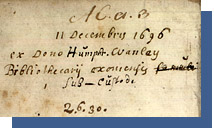 11 Decembris 1696
ex Dono Humfr. Wanley
Bibliothecarij oxoniensis
Sub-Custode
26.30.